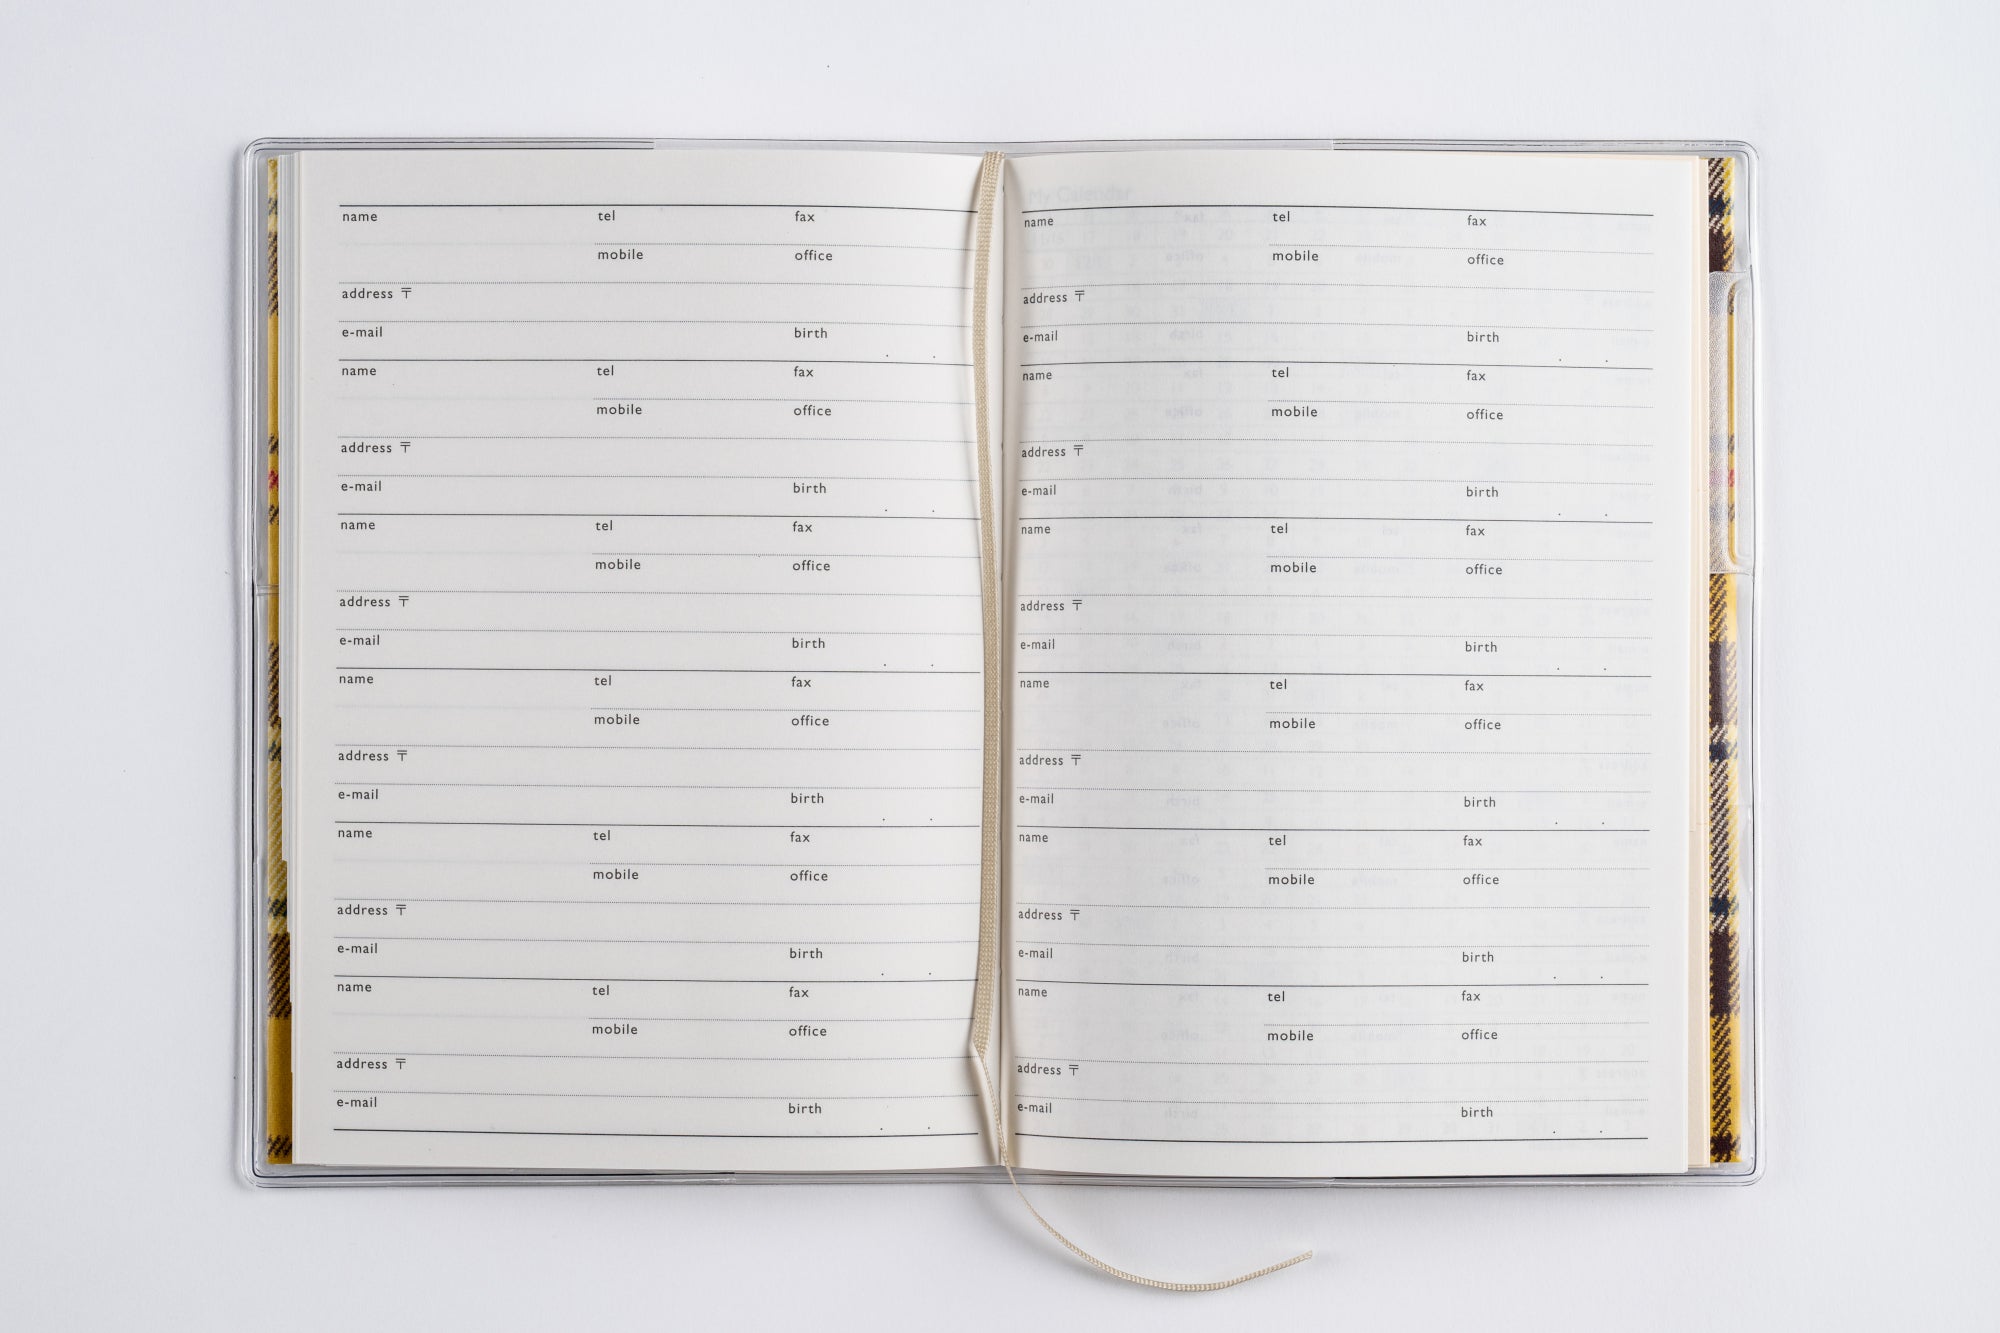 name tel fax
mobile office
address 〒
e-mail birth . .
name tel fax
mobile office
address 〒
e-mail birth . .
name tel fax
mobile office
address 〒
e-mail birth . .
name tel fax
mobile office
address 〒
e-mail birth . .
name tel fax
mobile office
address 〒
e-mail birth . .
name tel fax
mobile office
address 〒
e-mail birth . .
My Calendar
name tel fax
mobile office
address 〒
e-mail birth . .
name tel fax
mobile office
address 〒
e-mail birth . .
name tel fax
mobile office
address 〒
e-mail birth . .
name tel fax
mobile office
address 〒
e-mail birth . .
name tel fax
mobile office
address 〒
e-mail birth . .
name tel fax
mobile office
address 〒
e-mail birth . .